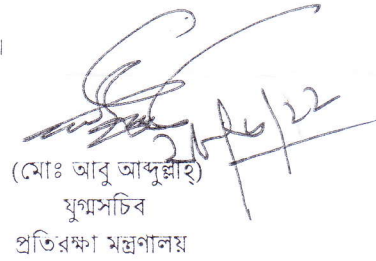 (মোঃ আবু আব্দুল্লাহ্)
যুগ্মসচিব
প্রতিরক্ষা মন্ত্রণালয়